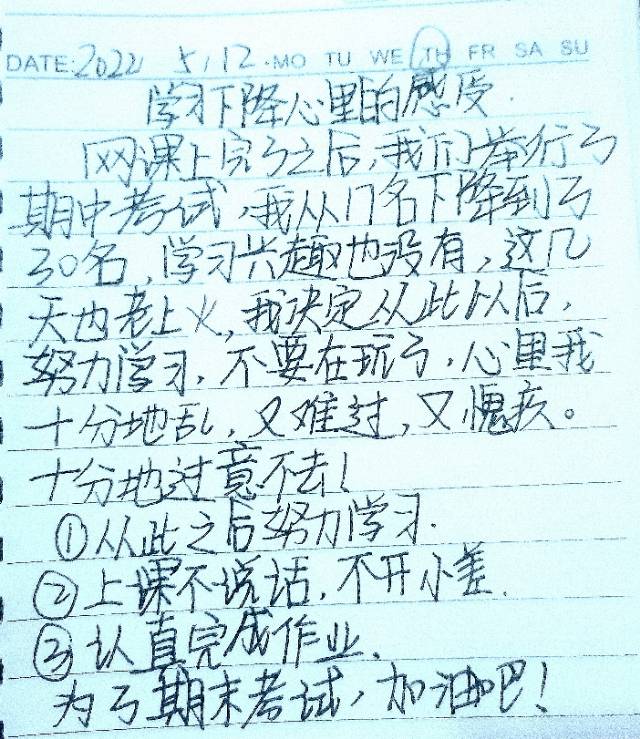 DATE: 2022 5.12 · MO TU WE TH FR SA SU
学习下降心里的感受.
网课上完了之后,我们举行了
期中考试,我从17名下降到了
30名,学习兴趣也没有,这几
天也老上火,我决定从此以后,
努力学习,不要在玩了,心里我
十分地乱,又难过,又愧疚。
十分地过意不去!
①从此之后努力学习.
②上课不说话,不开小差.
③认真完成作业.
为了期末考试,加油吧!